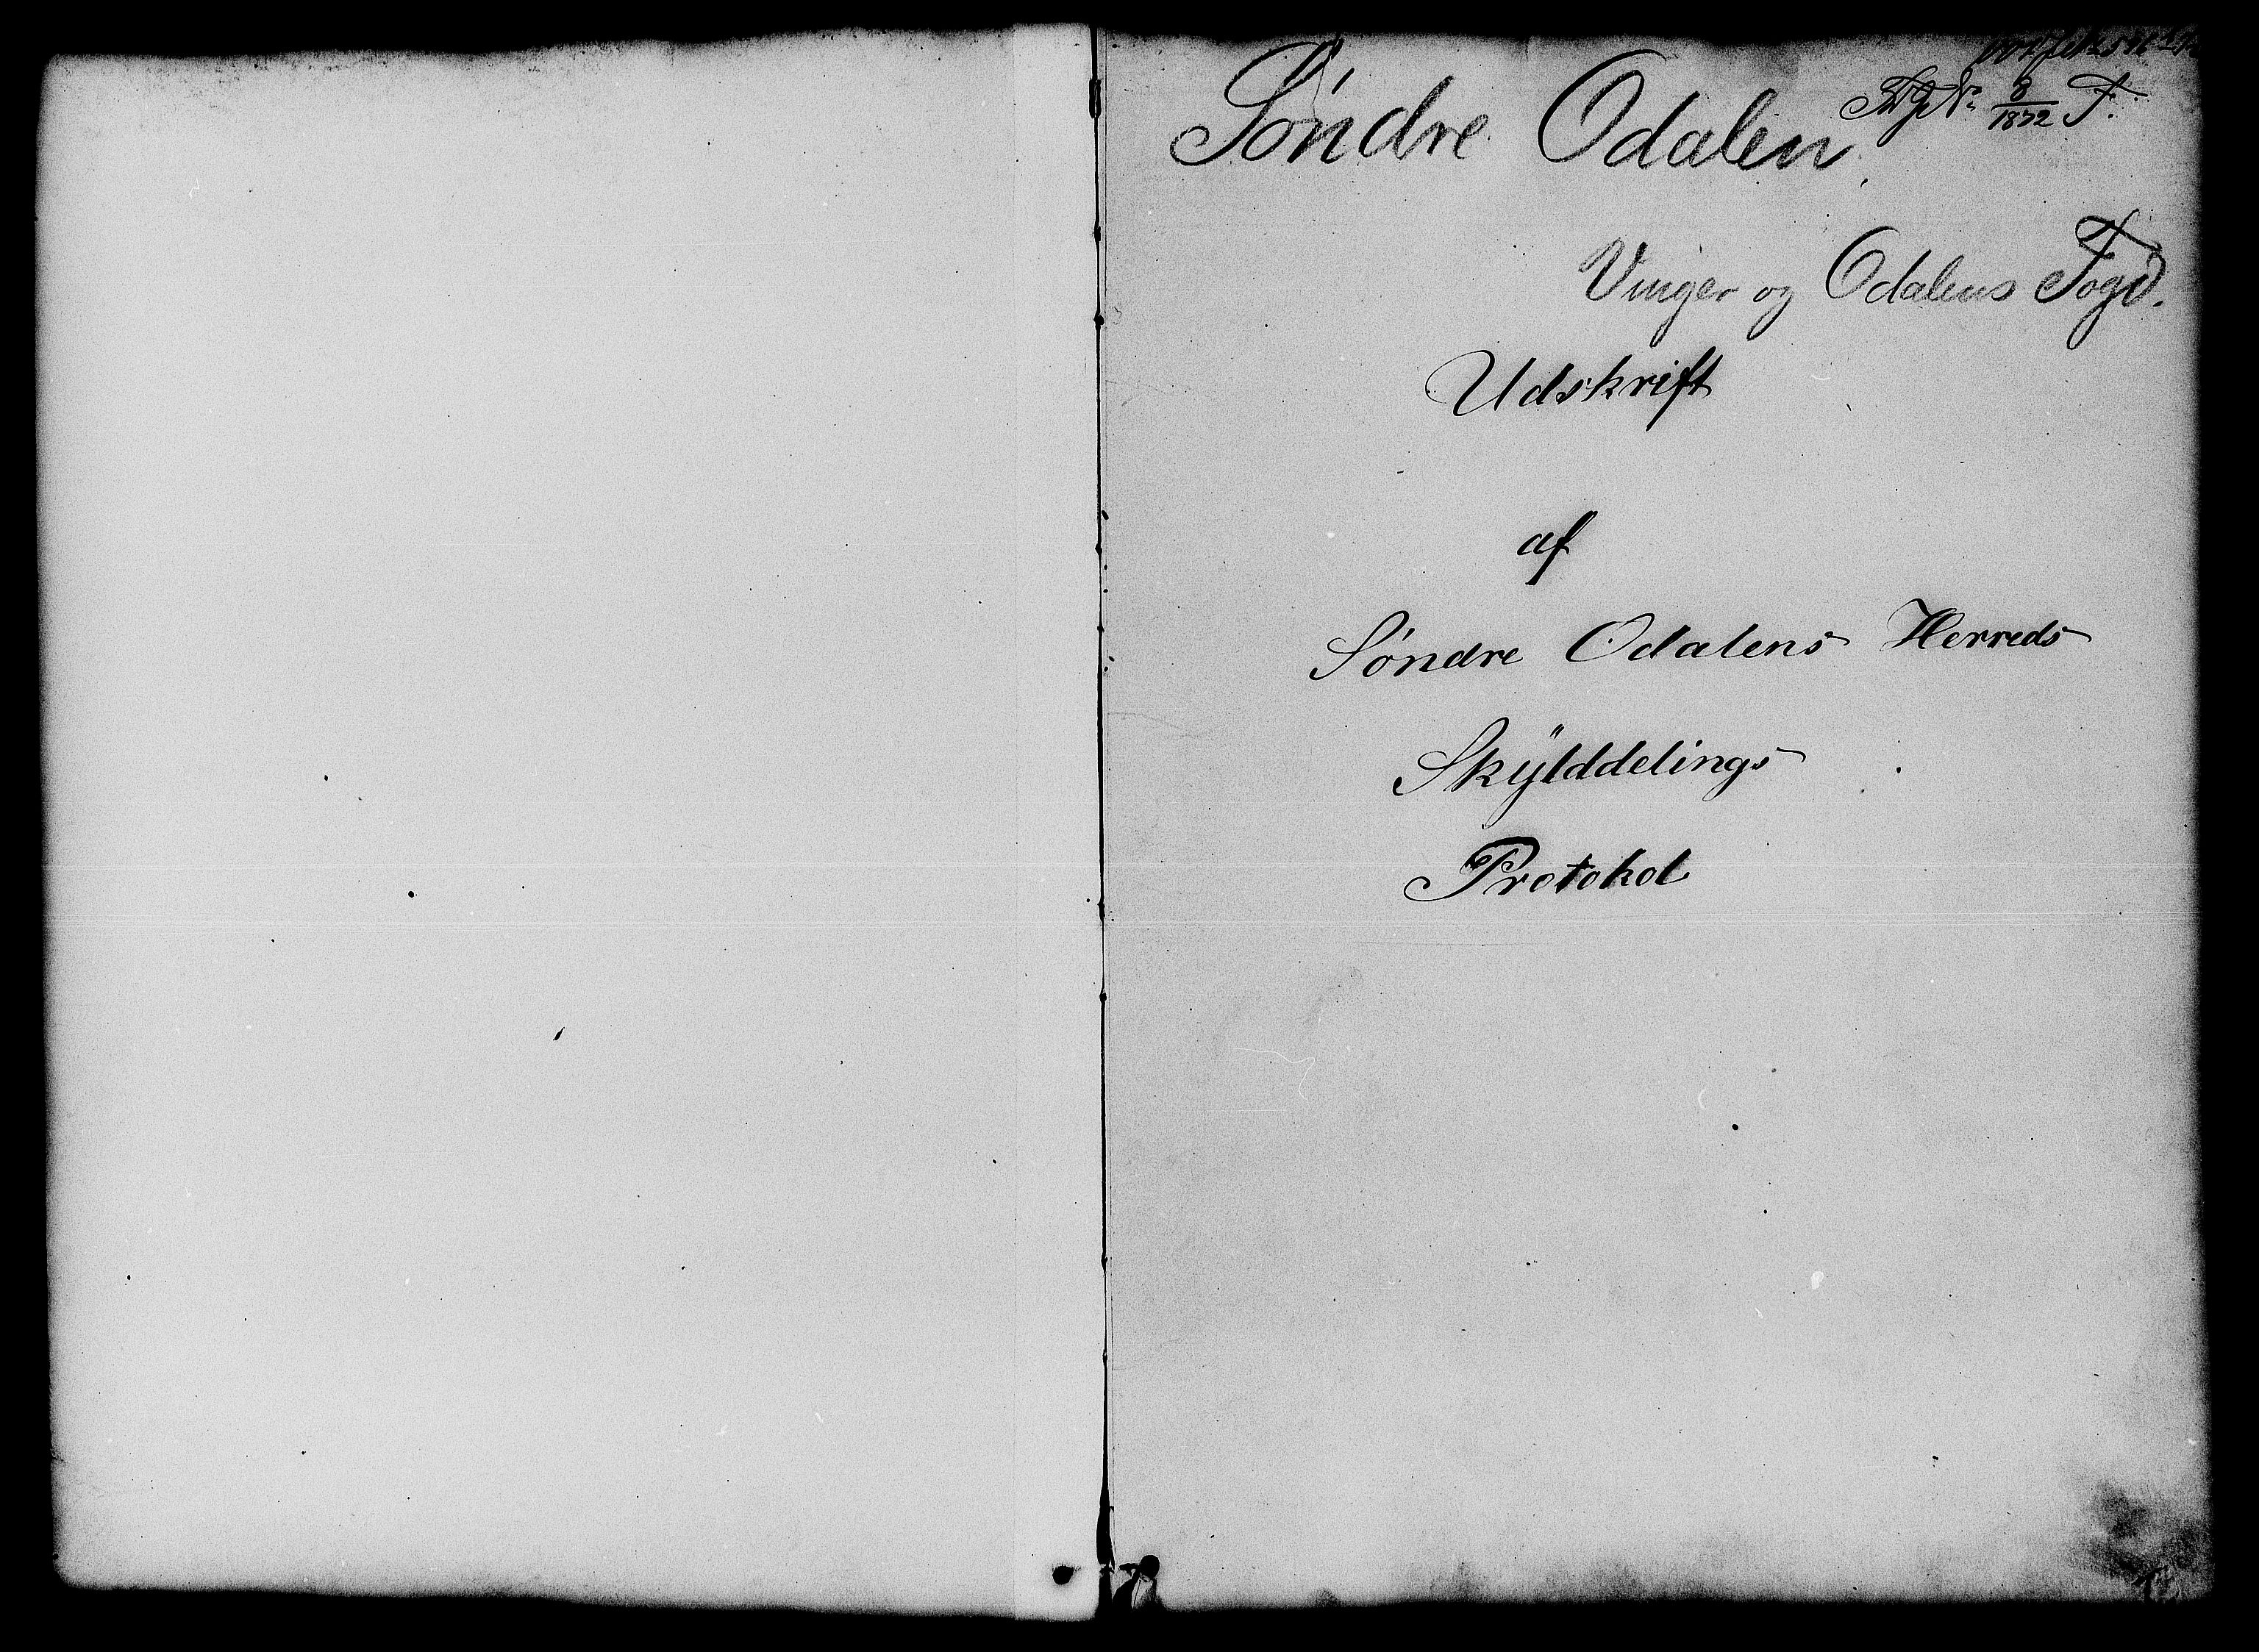 Søndre Odalen
8/1872 F.
Vinger og Odalens Fogd.
Udskrift
af
Søndre Odalens Herreds
Skÿlddelings
Protokol